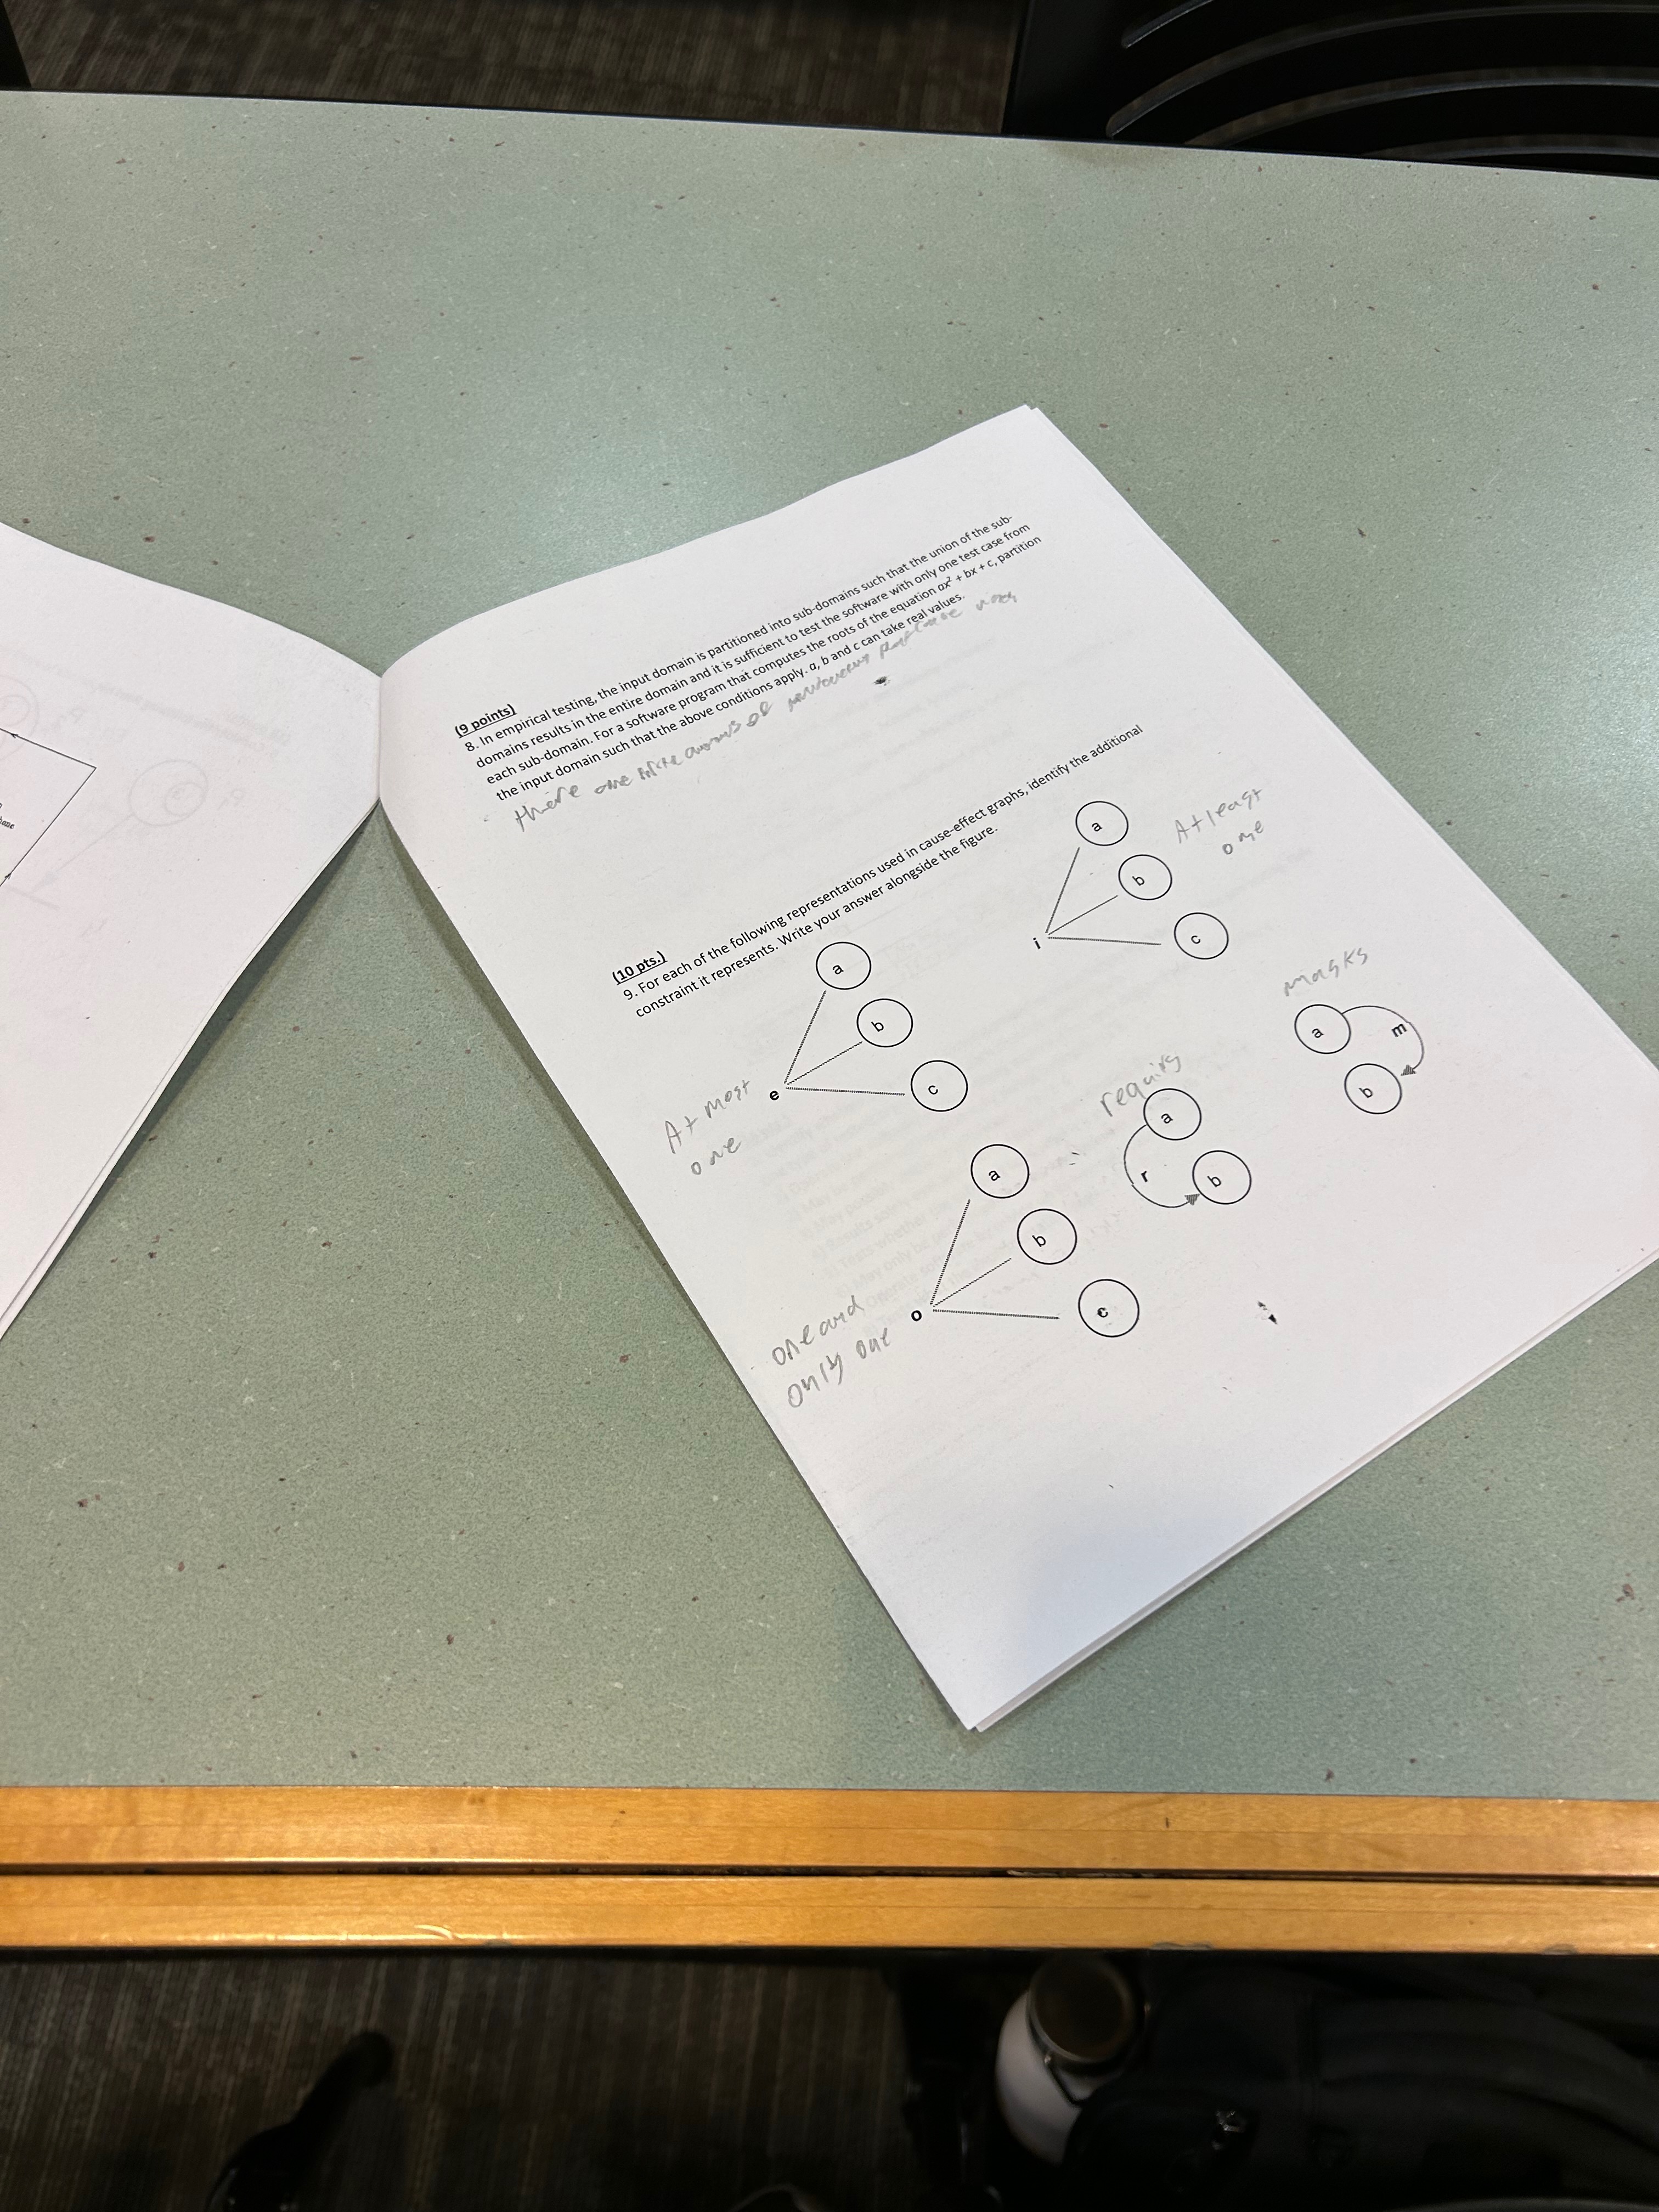 (9 points)
8. In empirical testing, the input domain is partitioned into sub-domains such that the union of the sub-
domains results in the entire domain and it is sufficient to test the software with only one test case from
each sub-domain. For a software program that computes the roots of the equation ax² + bx + c, partition
the input domain such that the above conditions apply. a, b and c can take real values.
there are
(10 pts.)
9. For each of the following representations used in cause-effect graphs, identify the additional
constraint it represents. Write your answer alongside the figure.
a
b
c
e
At most
one
a
b
c
i
At least
one
a
b
c
o
one and
only one
requirs
a
r
b
masks
a
m
b